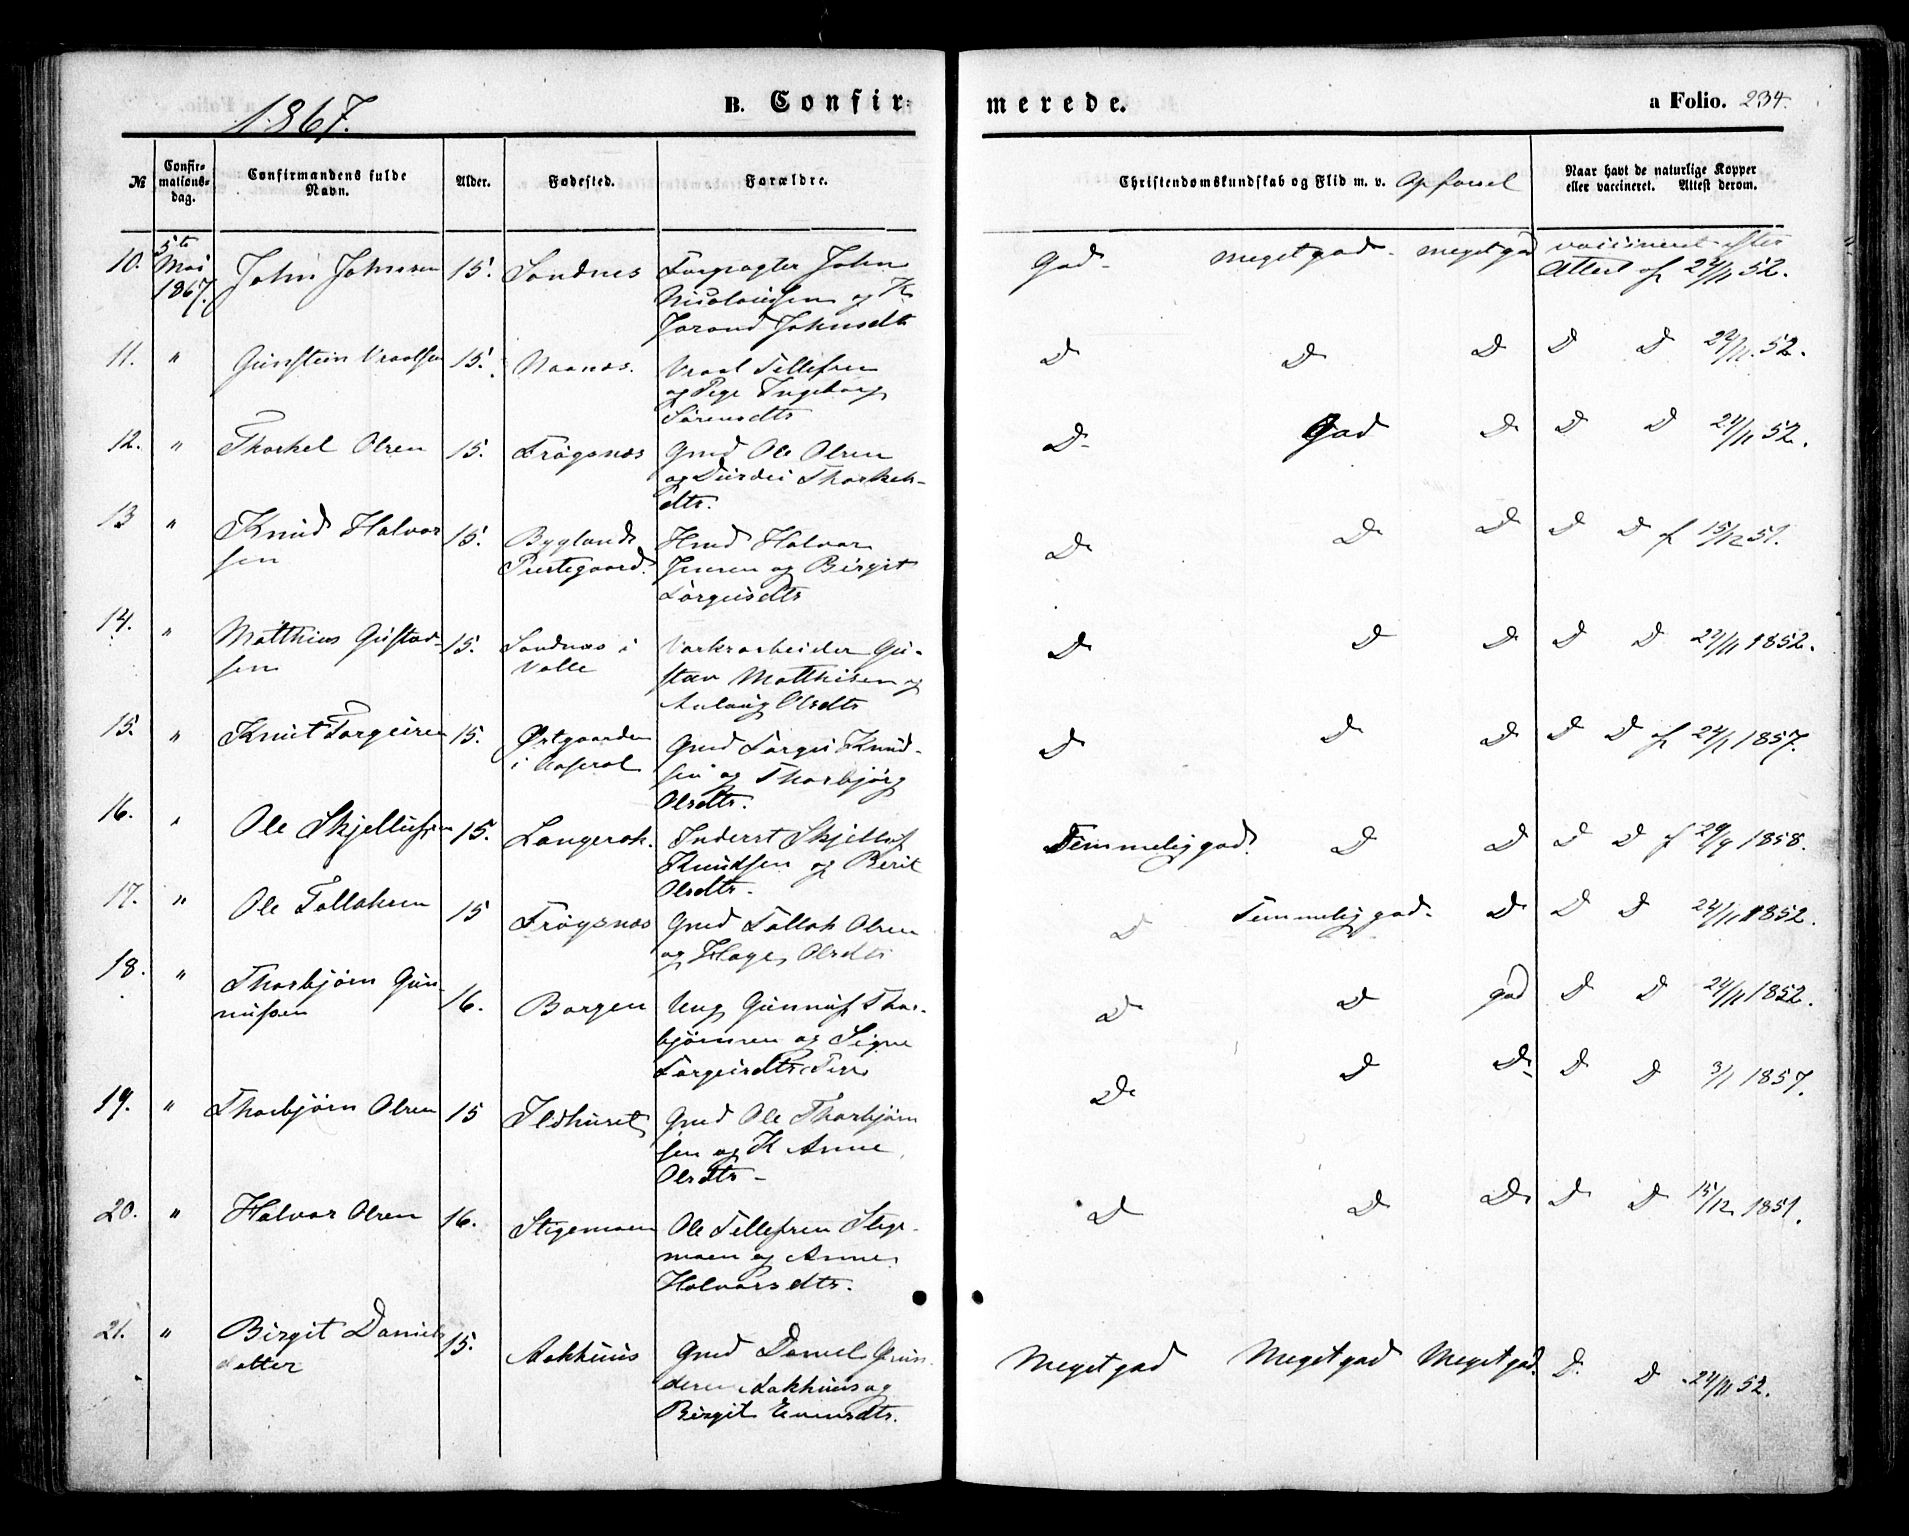 1867.
B. Confirmerede.
a Folio. 234.
№ Confirmationsdag. Confirmandens fulde Navn. Alder. Fødested. Forældre. Christendomskundskab og Flid m. v. Opførsel Naar havt de naturlige Kopper eller vaccineret. Attest derom.
10. 5te Mai 1867. John Johnsen 15. Sandnes Forpagter John
Nicolaisen og K.
Jorand Johnsdtr
God - meget god - meget god vaccineret efter
Attest af 24/11 52.
11. " Gunstein Vraalsen 15. Naanes. Vraal Tellefsen
og Pige Ingeborg
Sørensdtr
D D D D D 22/11. 52.
12. " Thorkel Olsen 15. Frøysnæs Gmd Ole Olsen
og Thorkels-
dtr.
D - God D D D 24/11 52.
13 " Knud Halvor 15. Byglands Hmd Halvor
sen Prestegaard. Jensen og Birgit
Torgeisdtr
D D D D D f 15/12 51.
14. " Matthias Gustav- 15. Sandnæs i Værkarbeider Gu-
sen Valle stav Matthisen og
Aslaug Olsdtr
D D D D D 22/11 1852.
15. " Knut Torgeisen 15. Østgaarden Gmd Torgei Knud-
i Aaseral sen og Thorbjørg
Olsdtr.
D D D D D af 24/1 1857.
16. " Ole Skjellufsen 15. Langerak. Inderst Skjelluf
Knudsen og Berit
Olsdtr.
Temmelig god. D D D D f 29/9 1858.
17. " Ole Tollaksen 15 Frøysnæs Gmd Tollak Olsen
og Hage Olsdtr
D Temmelig god. D D D 24/11 1852.
18. " Thorbjørn Gun- 16. Borgen Ung Gunnuf Thor-
nufsen bjørnsen og Signe
Torgeisdtr
D D god D D 24/11 1852.
19. " Thorbjørn Olsen 15 Ildhuset Gmd Ole Thorbjørn
sen og K Anne
Olsdtr -
D D D D D 3/1 1857.
20. " Halvor Olsen 16. Stigemoen Ole Tellefsen Stige-
moen og Anne
Halvorsdtr.
D D D D D 15/12 1851.
21. " Birgit Daniels 15. Aakhuus Gmd Daniel Gun-
datter dersen Aakhuus og
Birgit Evensdtr.
Meget god Meget god Meget god. D. D 24/11 52.